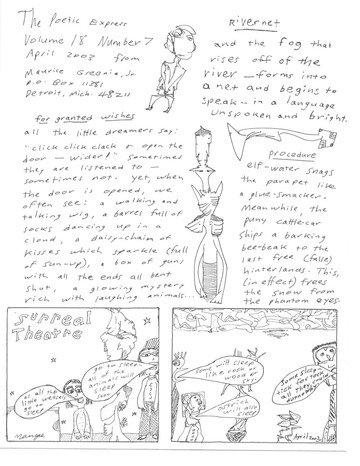 The Poetic Express
Volume 18 Number 7
April 2003 from
Maurice Greenia, Jr.
P.O. Box 11281,
Detroit, Mich. 48211
for granted wishes
all the little dreamers say:
"click click clack & open the
door — wider!" sometimes
they are listened to —
sometimes not. yet, when
the door is opened, we
often see: a walking and
talking wig, a barrel full of
socks dancing up in a
cloud, a daisy-chain of
kisses which sparkle (full
of sun-up), a box of guns
with all the ends all bent
shut, a glowing mystery
rich with laughing animals...
Rivernet
and the fog that
rises off of the
river — forms into
a net and begins to
speak — in a language
unspoken and bright.
procedure
elf-water snags
the parapet like
a glue-smacker.
Meanwhile, the
puny cattle-car
ships a barking
bee-beak to the
last free (false)
hinterlands. This,
(in effect) frees
the snow from
the phantom eyes.
Surreal
Theatre
as all the
little weasels
go to
sleep
go to sleep
all of the
animals will
sleep
soon
some will sleep
like rock or
wood or
sky.
ostrich
will also
sleep
some sleep
April 2003